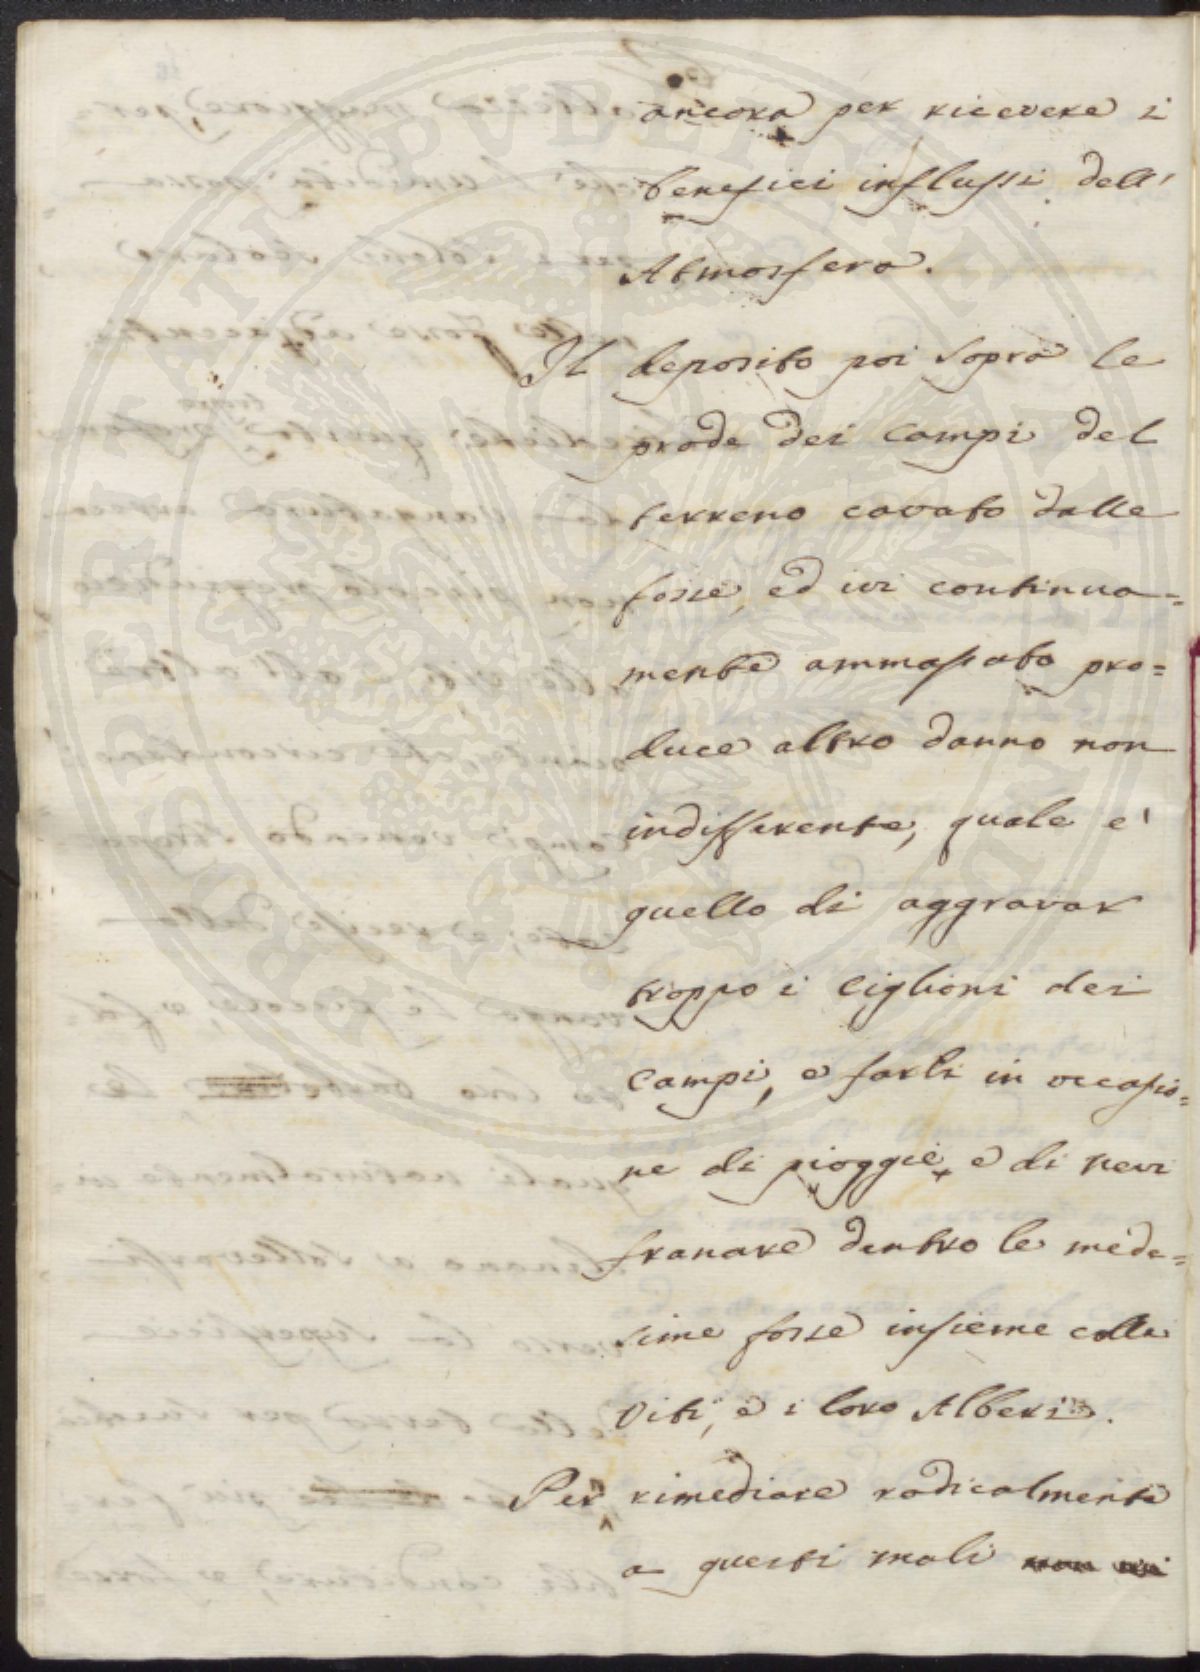 ancora per ricevere i
benefici influssi dell'
Atmosfera.
Il deposito poi sopra le
prode dei Campi del
terreno cavato dalle
fosse, ed ivi continua=
mente ammassato pro=
duce altro danno non
indifferente, quale e'
quello di aggravar
troppo i Ciglioni dei
Campi, e farli in occasio=
ne di pioggie, e di nevi
franare dentro le mede=
sime fosse insieme colle
Viti, e i loro Alberi.
Per rimediare radicalmente
a questi mali non vi
PROSPERITATI PVBLICAE AVGENDAE